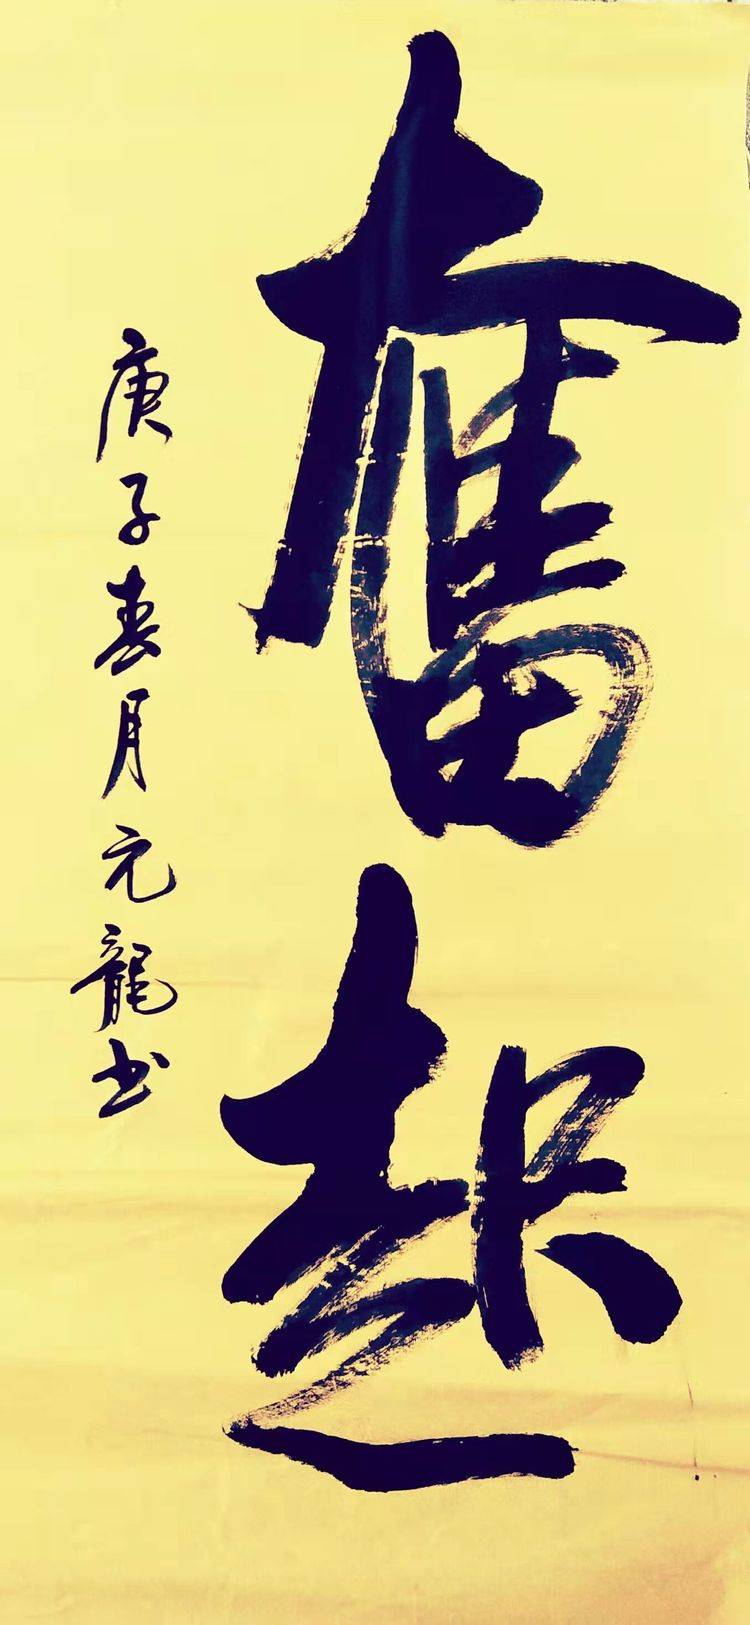 奮
庚子春月元龍书